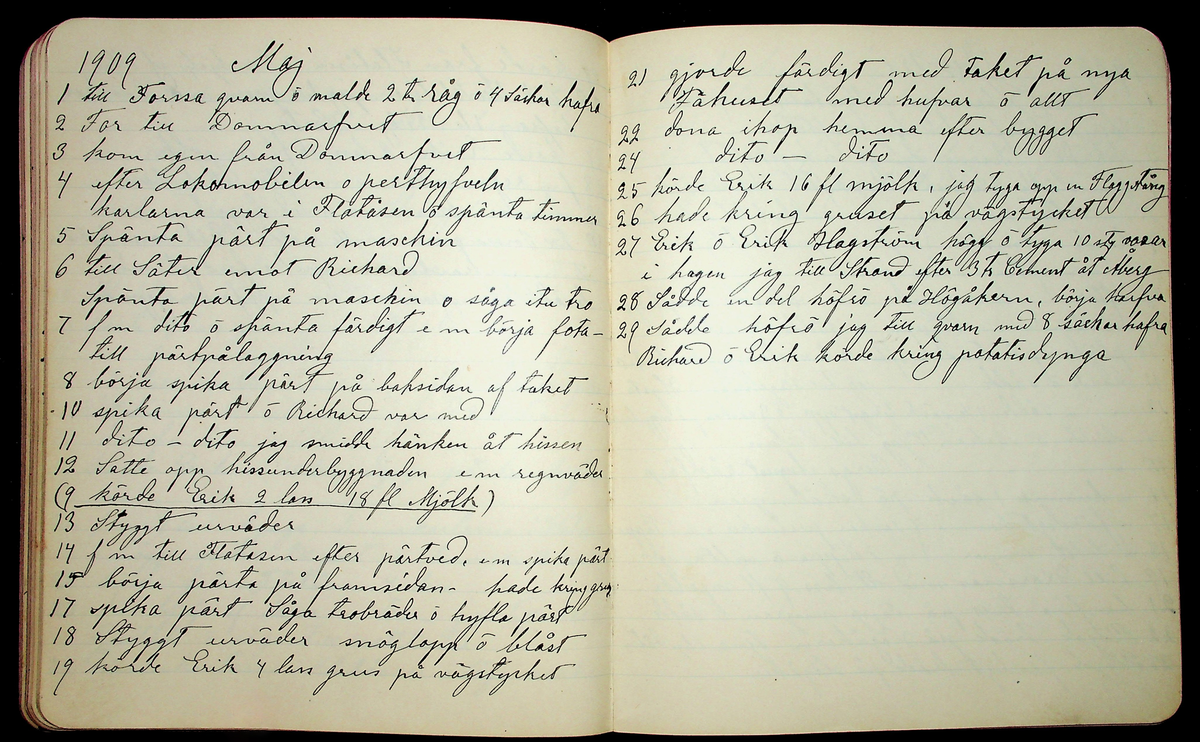 1909 Maj
1 till Forssa qvarn ö malde 2 tr råg ö 4 Säckar hafra
2 For till Domnarfvet
3 kom egen från Domnarfvet
4 efter Lokomobilen o perthyfveln
karlarna var i Flatåsen ö spänta timmer
5 Spänta pärt på maschin
6 till Säter emot Richard
Spänta pärt på maschin o såga itu tro
7 f m dito ö spänta färdigt e m börja fota-
till pärtpålaggning
8 börja spika pärt på baksidan af taket
10 spika pärt ö Richard var med
11 dito - dito jag smidde hänken åt hissen
12 Satte opp hissunderbyggnaden e m regnväder
(9 körde Erik 2 lass 18 fl Mjölk)
13 Styggt urväder
14 f m till Flatåsen efter pärtved, e m spika pärt
15 börja pärta på framsidan - hade kring grus
17 spika pärt Såga trobräder ö hyfla pärt
18 Styggt urväder snöglopp ö blåst
19 körde Erik 4 lass grus på vägstycket
21 gjorde färdigt med Taket på nya
Fähuset med hufvar ö allt
22 dona ihop hemma efter bygget
24 dito - dito
25 körde Erik 16 fl mjölk, jag tyga opp en Flaggstång
26 hade kring gruset på vägstycket
27 Erik ö Erik Hagström högg ö tyga 10 sty
i hagen jag till Strand efter 3 tr Cement åt Åberg
28 Sådde en del höfrö på Högåkern, börja harfva
29 sådde höfrö jag till qvarn med 8 säckar hafra
Richard ö Erik körde kring potatisdynga